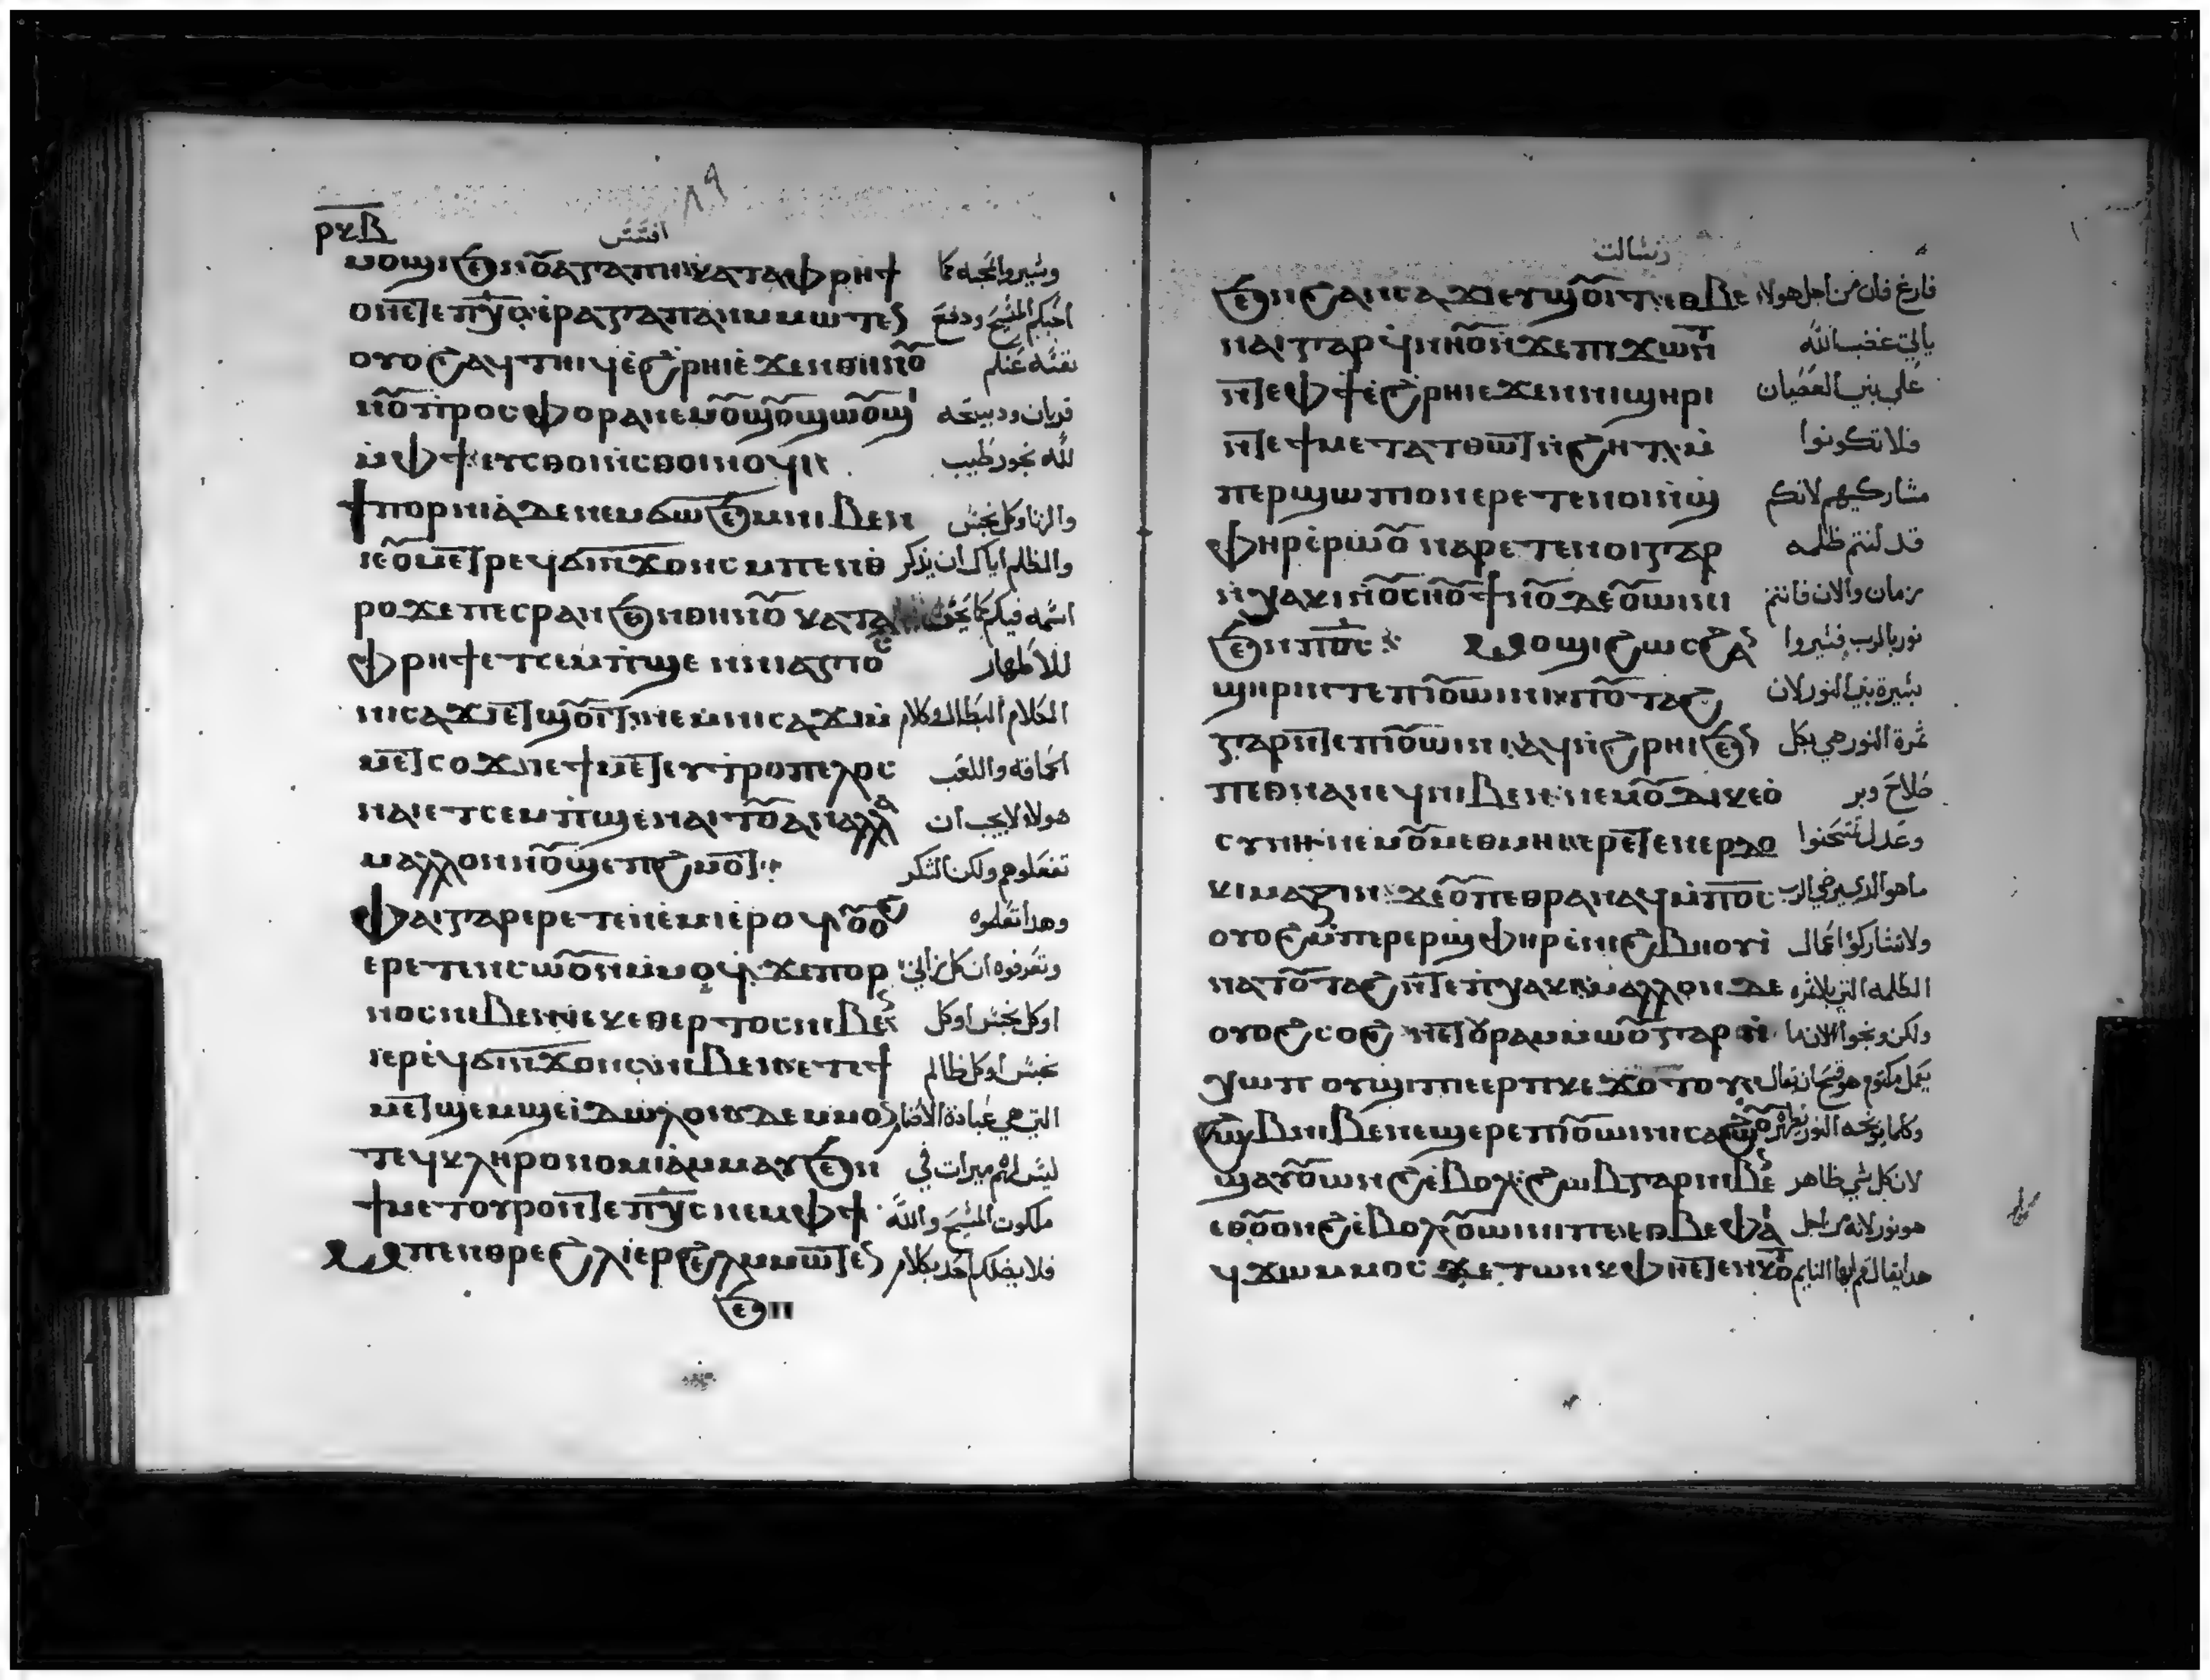 ⲣⲕⲃ
٨٩
افسس
ⲙⲟϣⲓϧⲉⲛⲟⲩⲁⲅⲁⲡⲏⲕⲁⲧⲁⲫⲣⲏϯ وسيروا بالمحبه كما
ⲟⲛⲉⲧⲉⲡⲭⲥⲉⲣⲁⲅⲁⲡⲁⲛⲙⲙⲱⲧⲉⲛ احبكم المسيح ودفع
ⲟⲩⲟϩⲁϥⲧⲏⲓϥⲉϩⲣⲏⲓⲉϫⲉⲛⲑⲏⲛⲟⲩ نفسه عنكم
ⲛⲟⲩⲡⲣⲟⲥⲫⲟⲣⲁⲛⲉⲙⲟⲩϣⲟⲩϣⲱⲟⲩϣⲓ قربان ودبيحه
ⲙⲫϯⲉⲩⲥⲑⲟⲓⲛⲥⲑⲟⲓⲛⲟⲩϥⲓ لله بخور طيب
ϯⲡⲟⲣⲛⲓⲁⲇⲉⲛⲉⲙϭⲱϧⲉⲙⲛⲓⲃⲉⲛ والزنا وكل نجس
ⲓⲉⲟⲩⲙⲉⲧⲣⲉϥϭⲓⲛϫⲟⲛⲥⲙⲡⲉⲛⲑ والظلم اياك ان يذكر
ⲣⲟϫⲉⲡⲉⲥⲣⲁⲛϧⲉⲛⲑⲏⲛⲟⲩⲕⲁⲧⲁ اسمه فيكم كما يحق
ⲫⲣⲏϯⲉⲧⲥⲉⲙⲡϣⲉⲛⲛⲓⲁⲅⲓⲟⲥ للاطهار
ⲛⲓⲥⲁϫⲓⲉⲧϣⲟⲩⲓⲧⲛⲉⲙⲛⲓⲥⲁϫⲓⲙ الكلام البطال وكلام
ⲙⲉⲧⲥⲟϫⲓⲉϯⲙⲉⲧⲉⲩⲧⲣⲟⲡⲉⲗⲟⲥ الحماقه واللعب
ⲛⲁⲓⲉⲧⲥⲉⲙⲡϣⲉⲛⲁⲓⲧⲟⲩⲁⲛⲁⲗⲗⲁ هولاء لا يجب ان
ⲙⲁⲗⲗⲟⲛⲛⲟⲩϣⲉⲡϩⲙⲟⲧ تفعلوهم ولكن الشكر
ⲫⲁⲓⲅⲁⲣⲉⲣⲉⲧⲉⲛⲉⲙⲓⲉⲣⲟϥⲟⲩⲟϩ وهدا تعلموه
ⲉⲣⲉⲧⲉⲛⲥⲱⲟⲩⲛⲙⲙⲟϥϫⲉⲡⲟⲣ وتعرفوه ان كل زاني
ⲛⲟⲥⲛⲓⲃⲉⲛⲓⲉⲕⲉⲑⲉⲣⲧⲟⲥⲛⲓⲃⲉⲛ اوكل نجس اوكل
ⲓⲉⲣⲉϥϭⲓⲛϫⲟⲛⲥⲛⲓⲃⲉⲛⲉⲧⲉϯ نجس اوكل ظالم
ⲙⲉⲧϣⲉⲙϣⲉⲓⲇⲱⲗⲟⲛⲧⲉⲙⲙⲟⲛ التي هي عبادة الاصنام
ⲧⲉϥⲕⲗⲏⲣⲟⲛⲟⲙⲓⲁⲙⲙⲁⲩϧⲉⲛ ليس لهم ميرات في
ϯⲙⲉⲧⲟⲩⲣⲟⲛⲧⲉⲡⲭⲥⲛⲉⲙⲫϯ ملكوت المسيح والله
ⲙⲡⲉⲛⲑⲣⲉϩⲗⲓⲉⲣϩⲁⲗⲙⲙⲱⲧⲉⲛ فلا يضلكم احد بكلام
ϧⲉⲛ
رسالت
ϧⲉⲛϩⲁⲛⲥⲁϫⲓⲉⲩϣⲟⲩⲓⲧⲉⲑⲃⲉ فارغ فان من اجل هولاء
ⲛⲁⲓⲅⲁⲣϥⲛⲏⲟⲩⲛϫⲉⲡϫⲱⲛⲧ ياتي غضب الله
ⲛⲧⲉⲫϯⲉϩⲣⲏⲓⲉϫⲉⲛⲛⲓϣⲏⲣⲓ علي بني العصيان
ⲛⲧⲉϯⲙⲉⲧⲁⲧⲑⲱⲧⲛϩⲏⲧⲙ فلا تكونوا
ⲡⲉⲣϣⲱⲡⲓⲟⲛⲉⲣⲉⲧⲉⲛⲟⲓⲛϣ مشاركيهم لانكم
ⲫⲏⲣⲉⲣⲱⲟⲩⲛⲁⲣⲉⲧⲉⲛⲟⲓⲅⲁⲣ قد كنتم ظلمه
ⲛⲭⲁⲕⲓⲛⲟⲩⲥⲏⲟⲩϯⲛⲟⲩⲇⲉⲟⲩⲱⲓⲛⲓ زمان والان فانتم
ϧⲉⲛⲡⲟⲥ ⲙⲟϣⲓϩⲱⲥϩⲁⲛ نور بالرب فسيروا
ϣⲏⲣⲓⲛⲧⲉⲡⲓⲟⲩⲱⲓⲛⲓⲡⲟⲩⲧⲁϩ بسيرة بني النور لان
ⲅⲁⲣⲛⲧⲉⲡⲓⲟⲩⲱⲓⲛⲓⲁϥⲛϩⲣⲏⲓϧⲉⲛ ثمرة النور هي بكل
ⲡⲉⲑⲛⲁⲛⲉϥⲛⲓⲃⲉⲛⲛⲉⲙⲟⲩⲇⲓⲕⲉⲟ صلاح وبر
ⲥⲩⲛⲏⲛⲉⲙⲟⲩⲙⲉⲑⲙⲏⲓⲉⲣⲉⲧⲉⲛⲉⲣⲇⲟ وعدل تمتحنوا
ⲕⲓⲙⲁⲍⲓⲛϫⲉⲟⲩⲡⲉⲑⲣⲁⲛⲁϥⲙⲡⲟⲥ ما هو الدي يرضي الرب
ⲟⲩⲟϩⲙⲡⲉⲣⲉⲣϣⲫⲏⲣⲉⲛⲓϩⲃⲏⲟⲩⲓ ولا تشاركوا اعمال
ⲛⲁⲧⲟⲩⲧⲁϩⲛⲧⲉⲡⲭⲁⲕⲓⲙⲁⲗⲗⲟⲛⲇⲉ الظلمه التي بلا ثمره
ⲟⲩⲟϩⲥⲟϩⲓ ولكن وبخوا
ⲭⲱⲡ ⲟⲩϣⲓⲡⲓⲡⲉⲉⲣⲡⲕⲉϫⲟⲧⲟⲩ
ϩⲱⲃⲛⲓⲃⲉⲛⲉϣⲉⲣⲉⲡⲓⲟⲩⲱⲓⲛⲓⲥⲁϩⲱⲟⲩ
ϣⲁⲩⲟⲩⲱⲛϩⲉⲃⲟⲗϩⲱⲃⲅⲁⲣⲛⲓⲃⲉⲛ لان كل شي ظاهر
ⲉⲑⲟⲩⲟⲛϩⲉⲃⲟⲗⲟⲩⲱⲓⲛⲓⲡⲉⲉⲑⲃⲉⲫⲁⲓ هو نور لانه من اجل
ϥϫⲱⲙⲙⲟⲥϫⲉⲧⲱⲛⲕⲫⲏⲉⲧⲉⲛⲕⲟⲧ هدا يقال قم ايها النايم